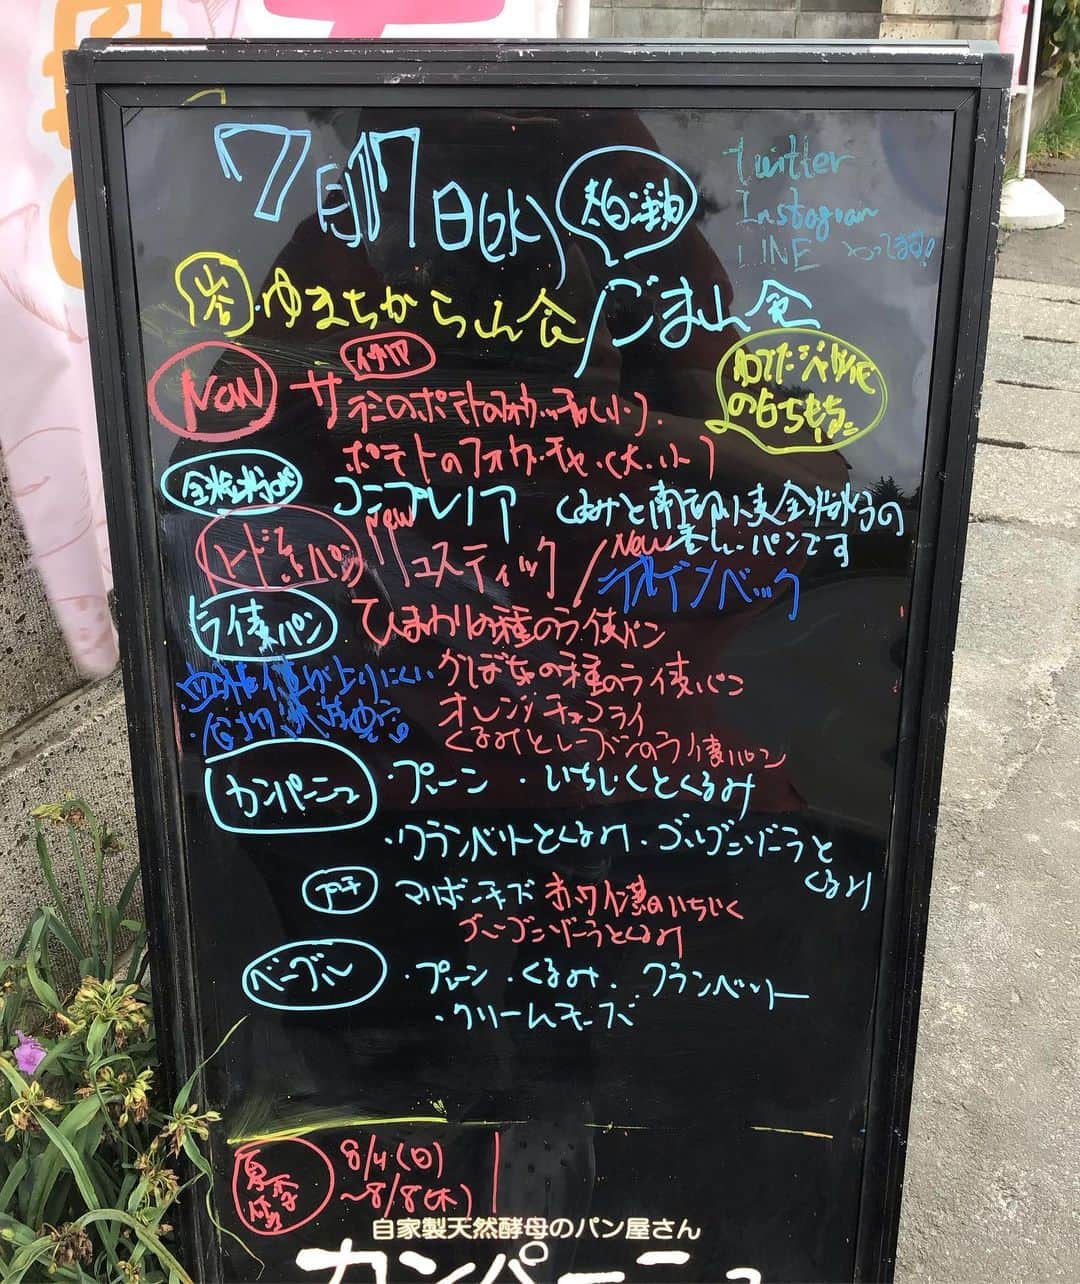 7月17日(水)
twitter
Instagram
LINE やってます!
ゆまちから山食/ごま山食
New
イタリア
サラミのポテトのフォカッチャ(小)
ポテトのフォカッチャ(大・小)
コンプレノア
くるみと南部小麦全粒粉の
香ばしいパンです
パン
New
リュスティック/
New
ラインベック
ライ麦パン
ひまわりの種のライ麦パン
かぼちゃの種のライ麦パン
血糖値が上りにくい
オレンジチョコライ
くるみとレーズンのライ麦パン
カンパーニュ
・プレーン ・いちじくとくるみ
・クランベリーとくるみ・ゴルゴンゾーラと
くるみ
プチ
マルボーチーズ 赤ワイン漬のいちじく
ゴルゴンゾーラとくるみ
ベーグル
・プレーン ・くるみ ・クランベリー
・クリームチーズ
夏季
8/4(日)
〜8/8(木)
自家製天然酵母のパン屋さん
カンパーニュ